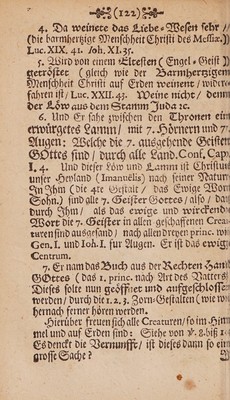 (122)
4. Da weinete das Liebe-Wesen sehr/
(die barmhertzige Menschheit Christi des Messiæ.)
Luc. XIX, 41. Joh. XI. 35.
5. Wird von einem Eltesten (Engel-Geist)
getröstet (gleich wie der Barmhertzigen
Menschheit Christi auf Erden weinent/ wider-
fahren ist/ Luc. XXII. 43. Weine nicht/ denn
der Löw aus dem Stamm Juda ꝛc.
6. Und Er sahe zwischen den Thronen ein
erwürgetes Lamm/ mit 7. Hörnern und 7.
Augen: Welche die 7. ausgehende Geister
GOttes sind/ durch alle Land. Conf. Cap.
I. 4. Und dieser Löw und Lamm ist Christus
unser Heyland (Imanuëlis) nach seiner Natur
In Ihm (die 4te Gestalt/ das Ewige Wort
Sohn.) sind alle 7. Geister Gottes/ also/ da
durch Ihn/ als das ewige und würckende
Wort die 7. Geister in allen geschaffenen Crea-
turen sind ausgesand/ nach allen dreyen princ.
Gen. I. und Joh. I. fur Augen. Er ist das ewige
Centrum.
7. Er nam das Buch aus der Rechten Hand
GOttes (das 1. princ. nach Art des Vatters)
Dieses solte nun geöffnet und aufgeschlossen
werden/ durch die 1. 2. 3. Zorn-Gestalten (wie wir
hernach ferner hören werden.
Hierüber freuen sich alle Creaturen/ so im Him-
mel und auf Erden sind: Siehe von 8. biß
Es denckt die Vernunfft/ ist dieses dann so ein
grosse Sache?